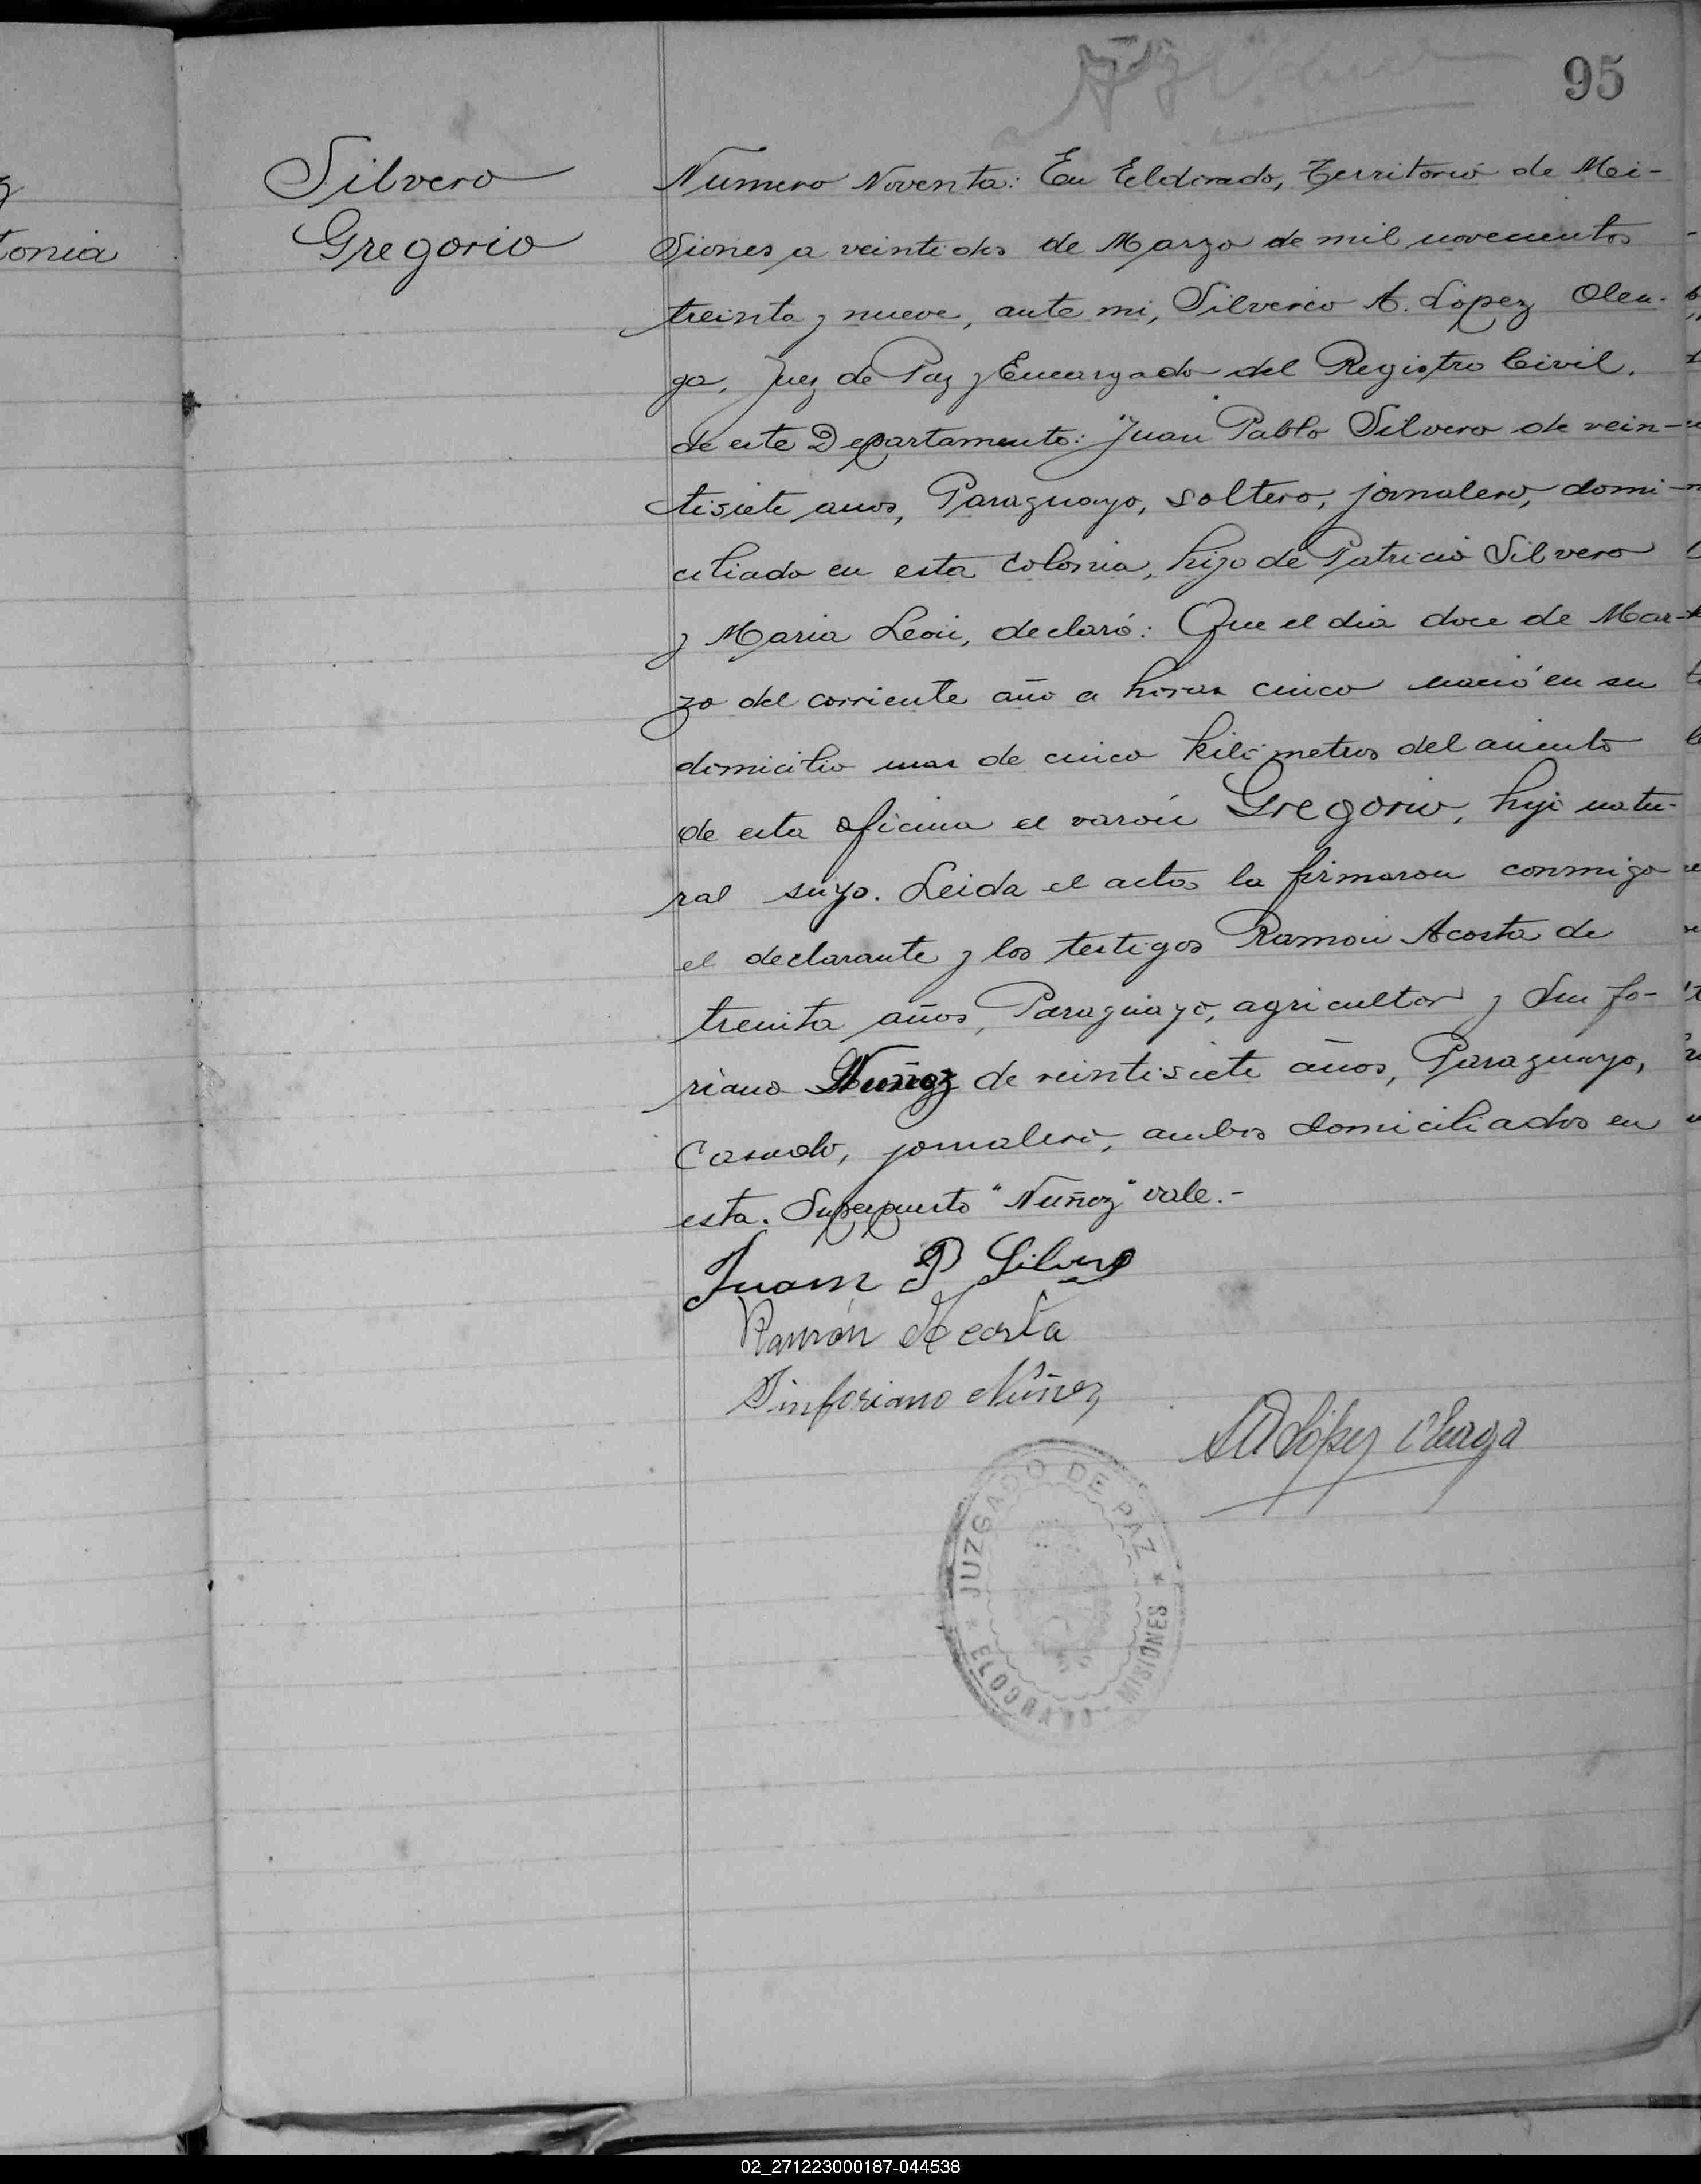 95
Silvero
Gregorio
tonia
Numero Noventa: En Eldorado, Territorio de Mi-
siones a veintidos de Marzo de mil novecientos
treinta y nueve, ante mi, Silverio A. López Olea-
ga, Juez de Paz y Encargado del Registro Civil.
de este Departamento: Juan Pablo Silvero de vein-
tisiete anos, Paraguayo, soltero, jornalero, domi-
ciliado en esta Colonia, hijo de Patricio Silvero
y Maria León, declaró: Que el dia doce de Mar-
zo del corriente año a horas cinco nació en su
domicilio mas de cinco kilómetros del asiento
de esta oficina el varón Gregorio, hijo natu-
ral suyo. Leida el acta la firmaron conmigo
el declarante y los testigos Ramón Acosta de
treinta años, Paraguayo, agricultor y Sinfo-
riano Nuñez de veintisiete años, Paraguayo,
Casado, jornalero, ambos domiciliados en
esta. Superpuesto "Nuñez" vale.-
Juan P Silvero
Ramón Acosta
Sinforiano Nuñez
SA López Oleaga
JUZGADO DE PAZ
* ELDORADO - MISIONES *
02_271223000187-044538